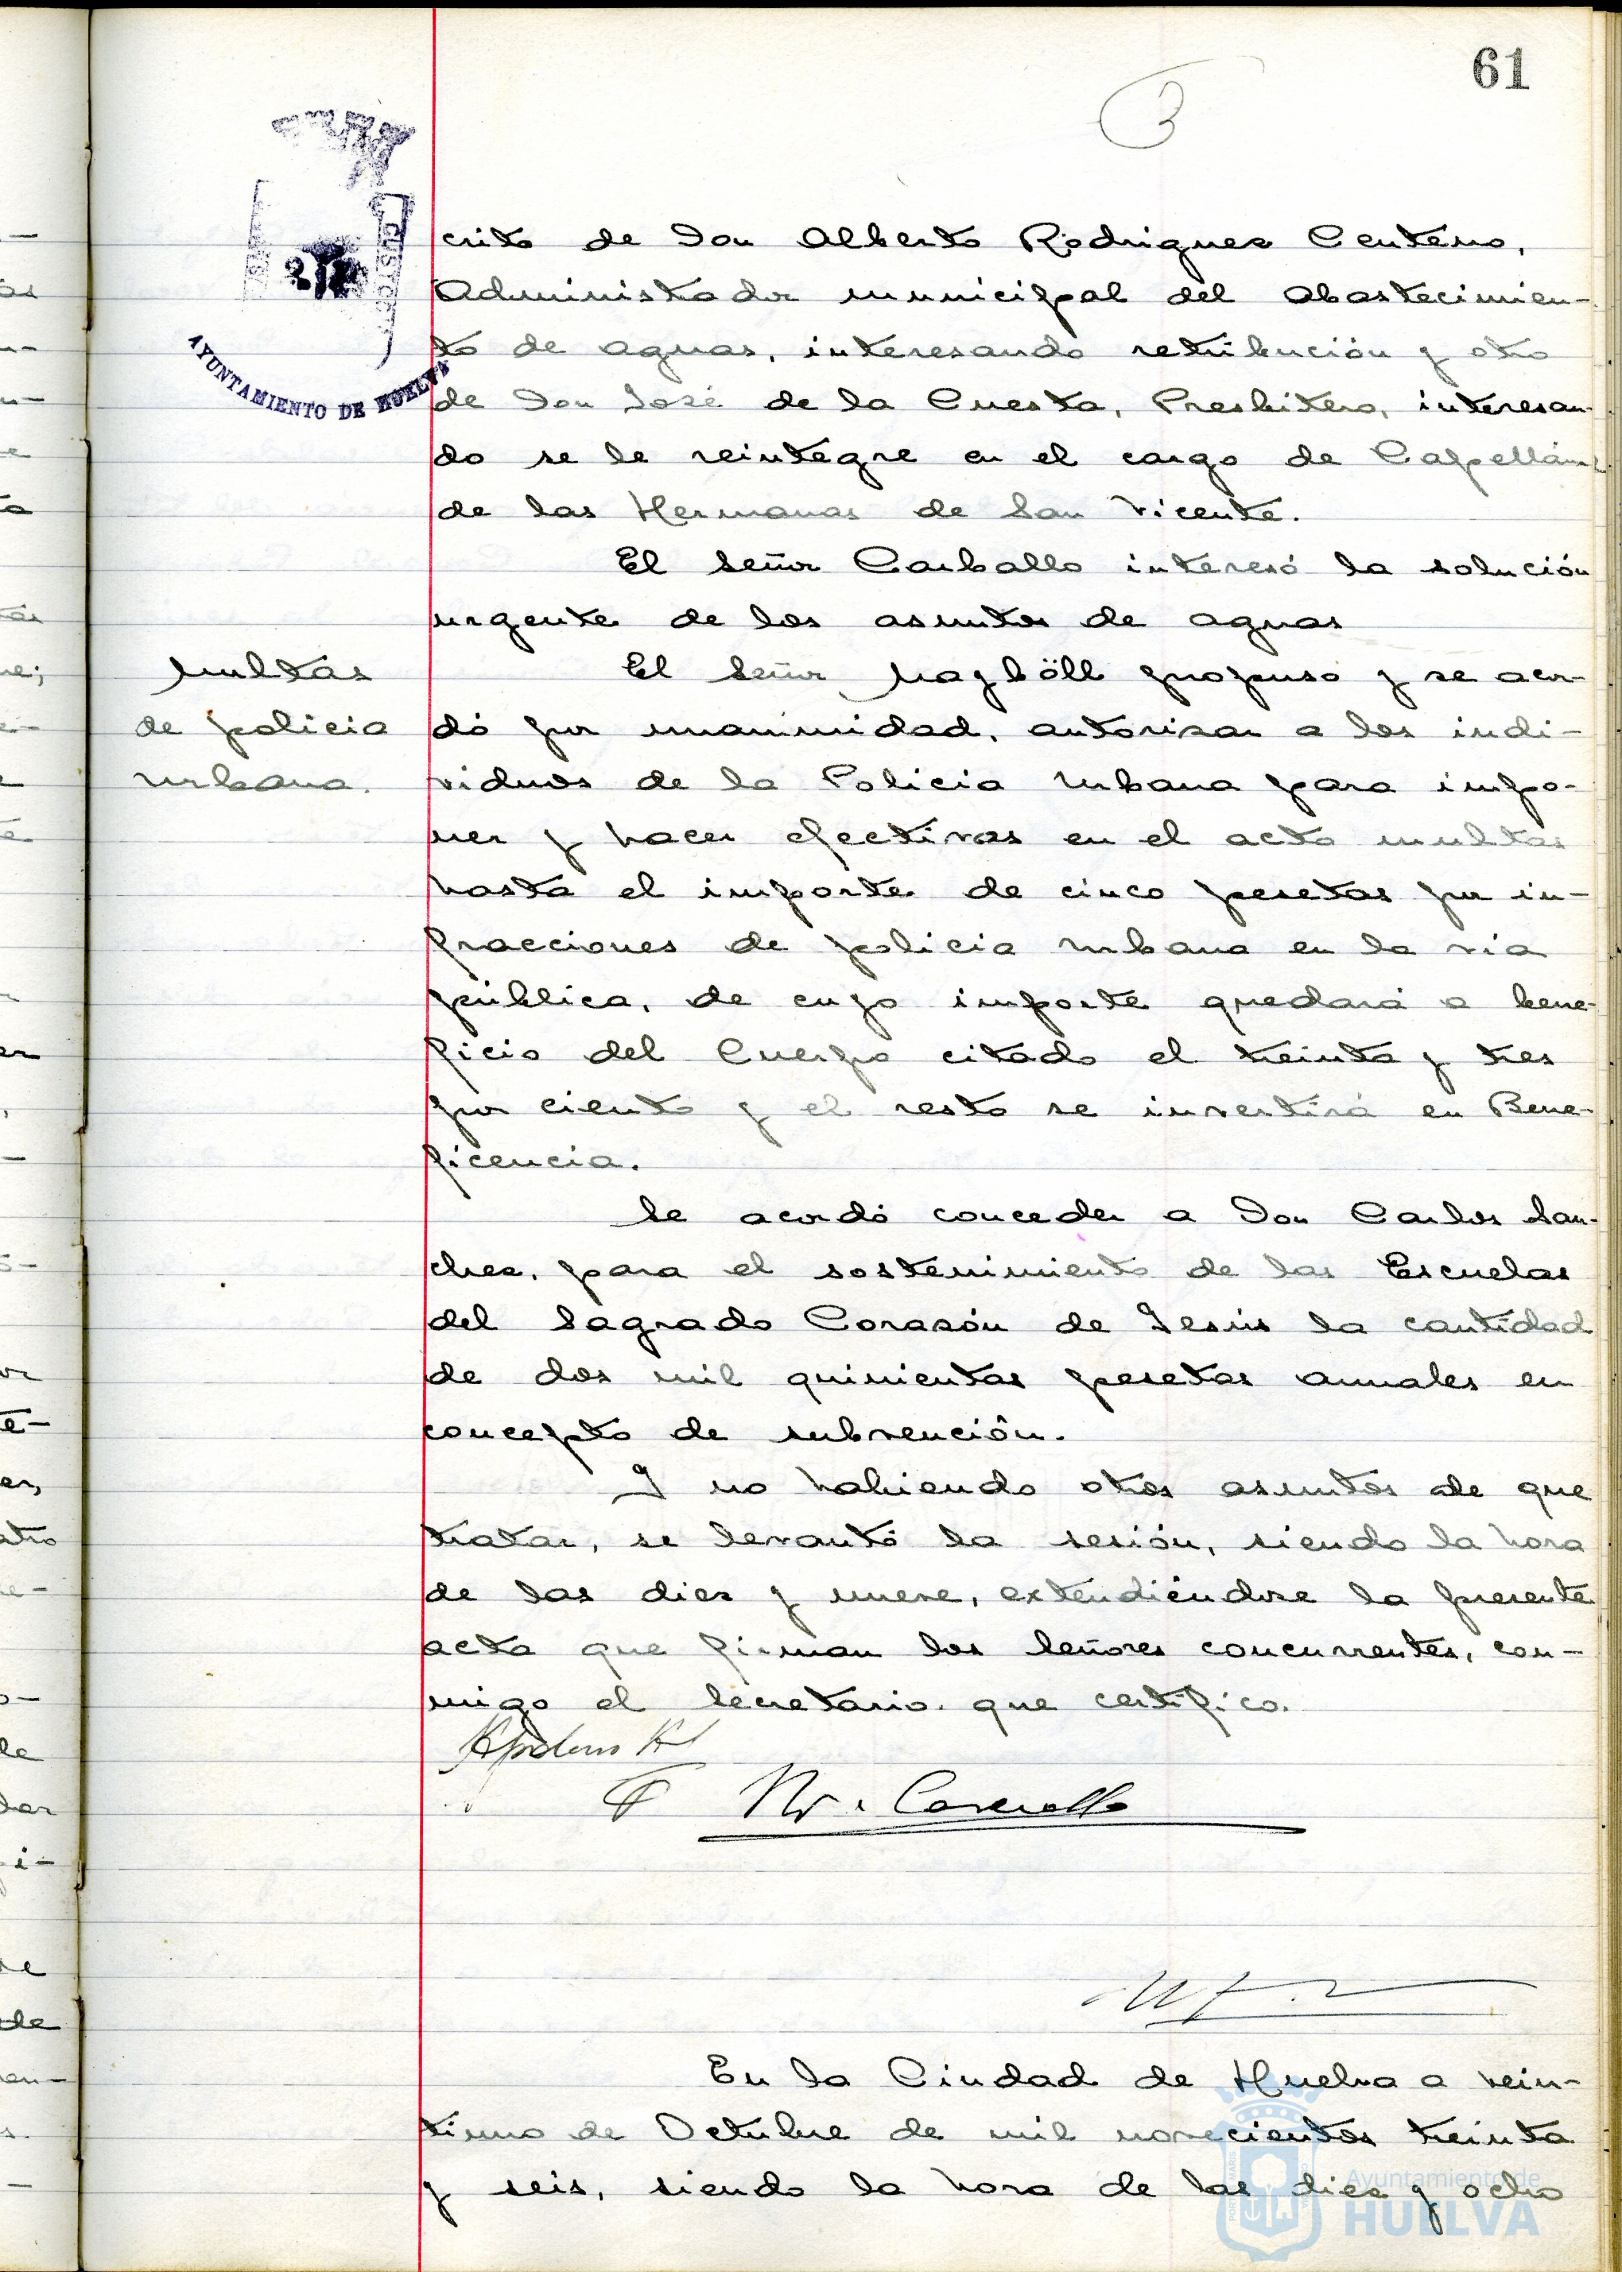 61
3
AYUNTAMIENTO DE HUELVA
crito de Don Alberto Rodriguez Centeno,
Administrador municipal del Abastecimien-
to de aguas, interesando retribución y otro
de Don José de la Cuesta, Presbitero, interesan-
do se le reintegre en el cargo de Capellán
de las Hermanas de San Vicente.
El Señor Carballo interesó la solución
urgente de los asuntos de aguas
Multas
de policia
urbana.
El Señor Maÿböll propuso y se acor-
dó por unanimidad, autorizar a los indi-
viduos de la Policia Urbana para impo-
ner y hacer efectivas en el acto multas
hasta el importe de cinco pesetas por in-
fracciones de policia urbana en la via
pública, de cuyo importe quedará a bene-
ficio del Cuerpo citado el treinta y tres
por ciento y el resto se invertirá en Bene-
ficencia.
Se acordó conceder a Don Carlos San-
chez, para el sostenimiento de las Escuelas
del Sagrado Corazón de Jesús la cantidad
de dos mil quinientas pesetas anuales en
concepto de subvención.
Y no habiendo otros asuntos de que
tratar, se levantó la sesión, siendo la hora
de las diez y nueve, extendiéndose la presente
acta que firman los Señores concurrentes, con-
migo el Secretario. que certifico.
En la Ciudad de Huelva a vein-
tiuno de Octubre de mil novecientos treinta
y seis, siendo la hora de las diez y ocho
Ayuntamiento de
HUELVA